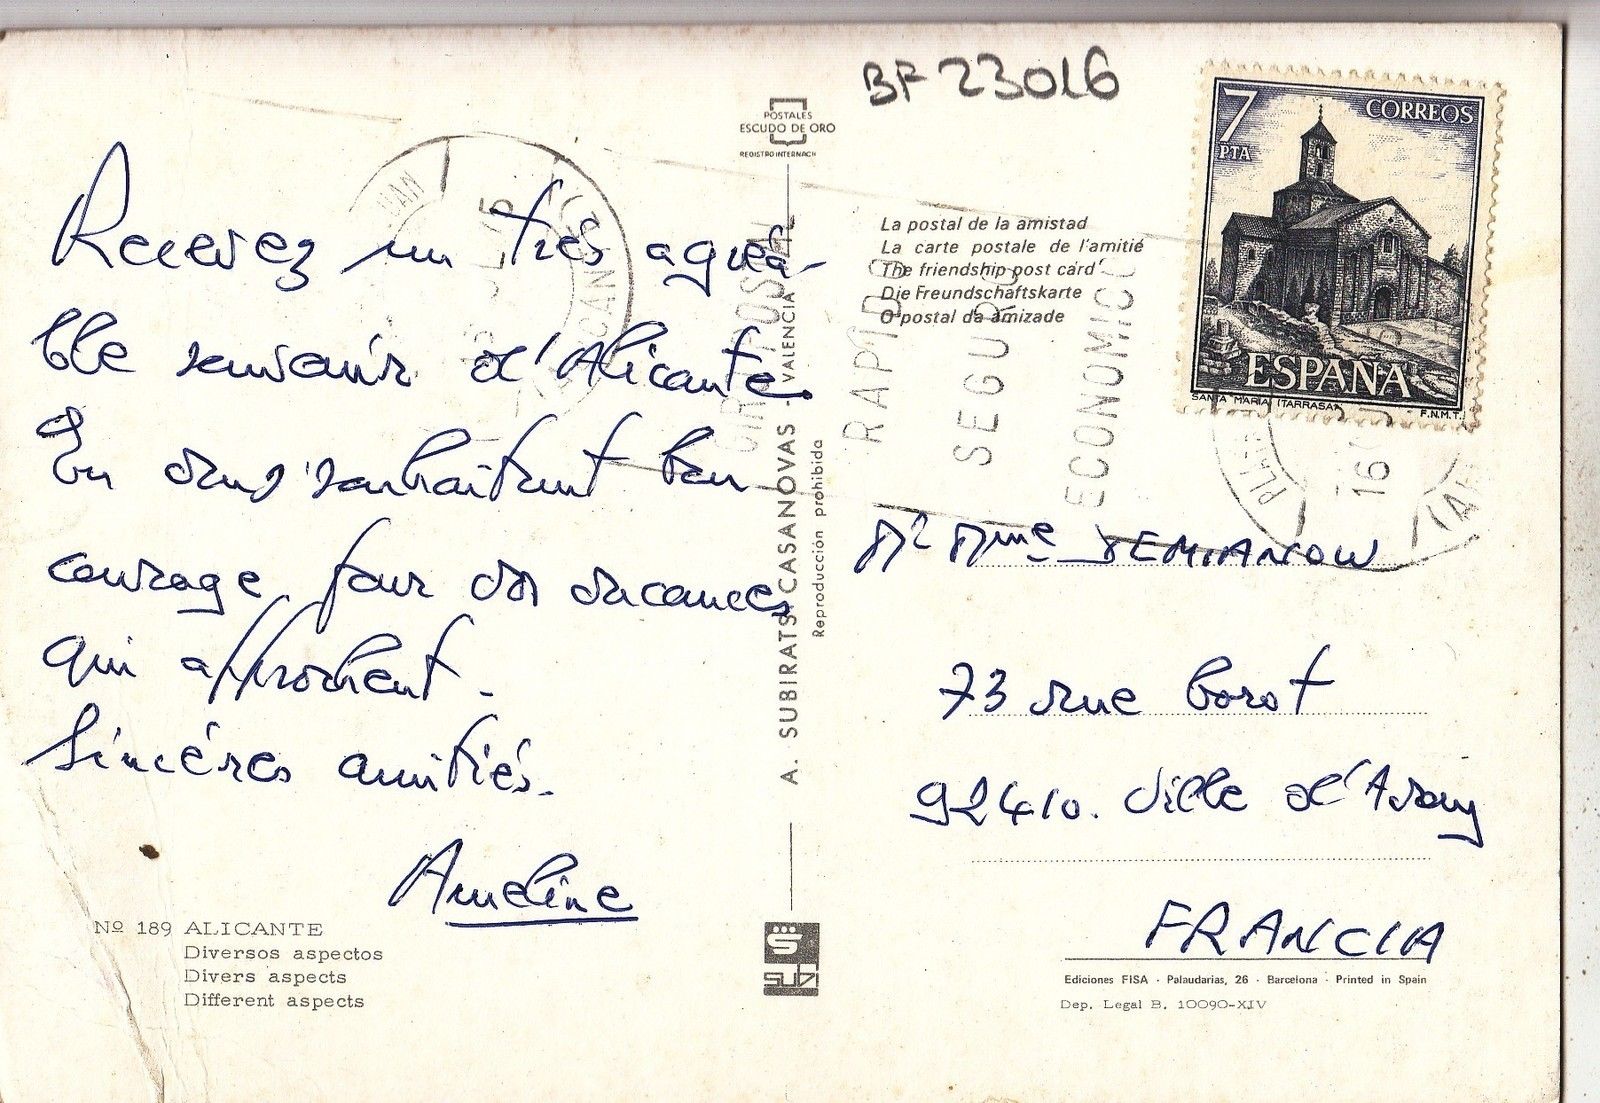 BF 23016
POSTALES
ESCUDO DE ORO
REGISTRO INTERNAC.
7
PTA
CORREOS
ESPAÑA
SANTA MARIA (TARRASA)
F.N.M.T.
Recevez un très agréa-
ble souvenir d'Alicante.
En vous souhaitant bon
courage pour vos vacances
qui approchent.
Sincères amitiés.
Ameline
Nº 189 ALICANTE
Diversos aspectos
Divers aspects
Different aspects
A. SUBIRATS CASANOVAS - VALENCIA
Reproducción prohibida
subi
La postal de la amistad
La carte postale de l'amitié
The friendship post card
Die Freundschaftskarte
O postal da amizade
GIRO POSTAL
RAPIDO
SEGURO
ECONOMICO
Mr Mme DEMIANOW
73 rue Corot
92410. Ville d'Avray
FRANCIA
Ediciones FISA - Palaudarias, 26 - Barcelona - Printed in Spain
Dep. Legal B. 10090-XIV